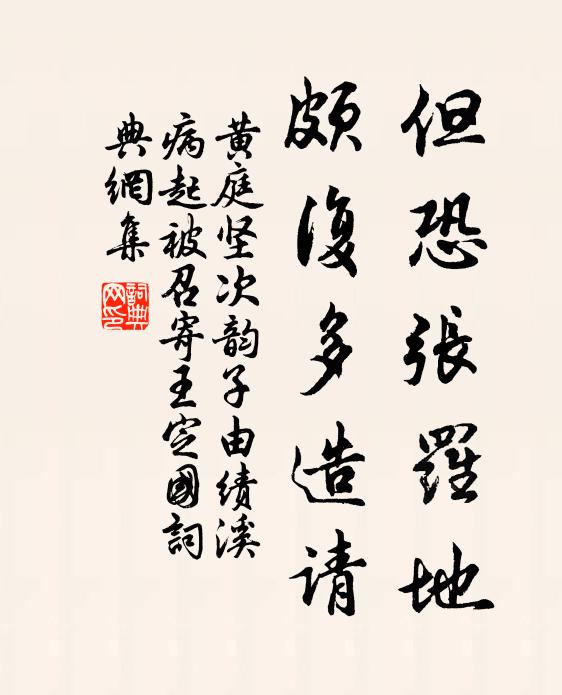 但恐張羅地
頗復多造请
黄庭坚次韵子由绩溪
病起被召寄王定國詞
典網集
詞典
网印